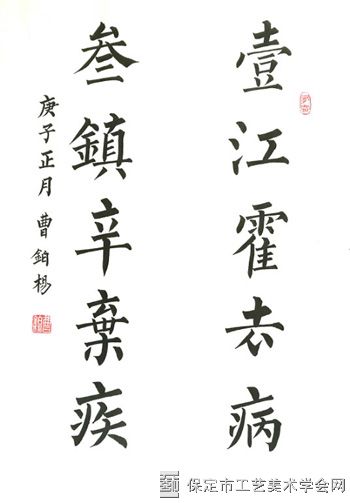 壹江霍去病
叁鎮辛棄疾
庚子正月曹鉑楊
保定市工艺美术学会网